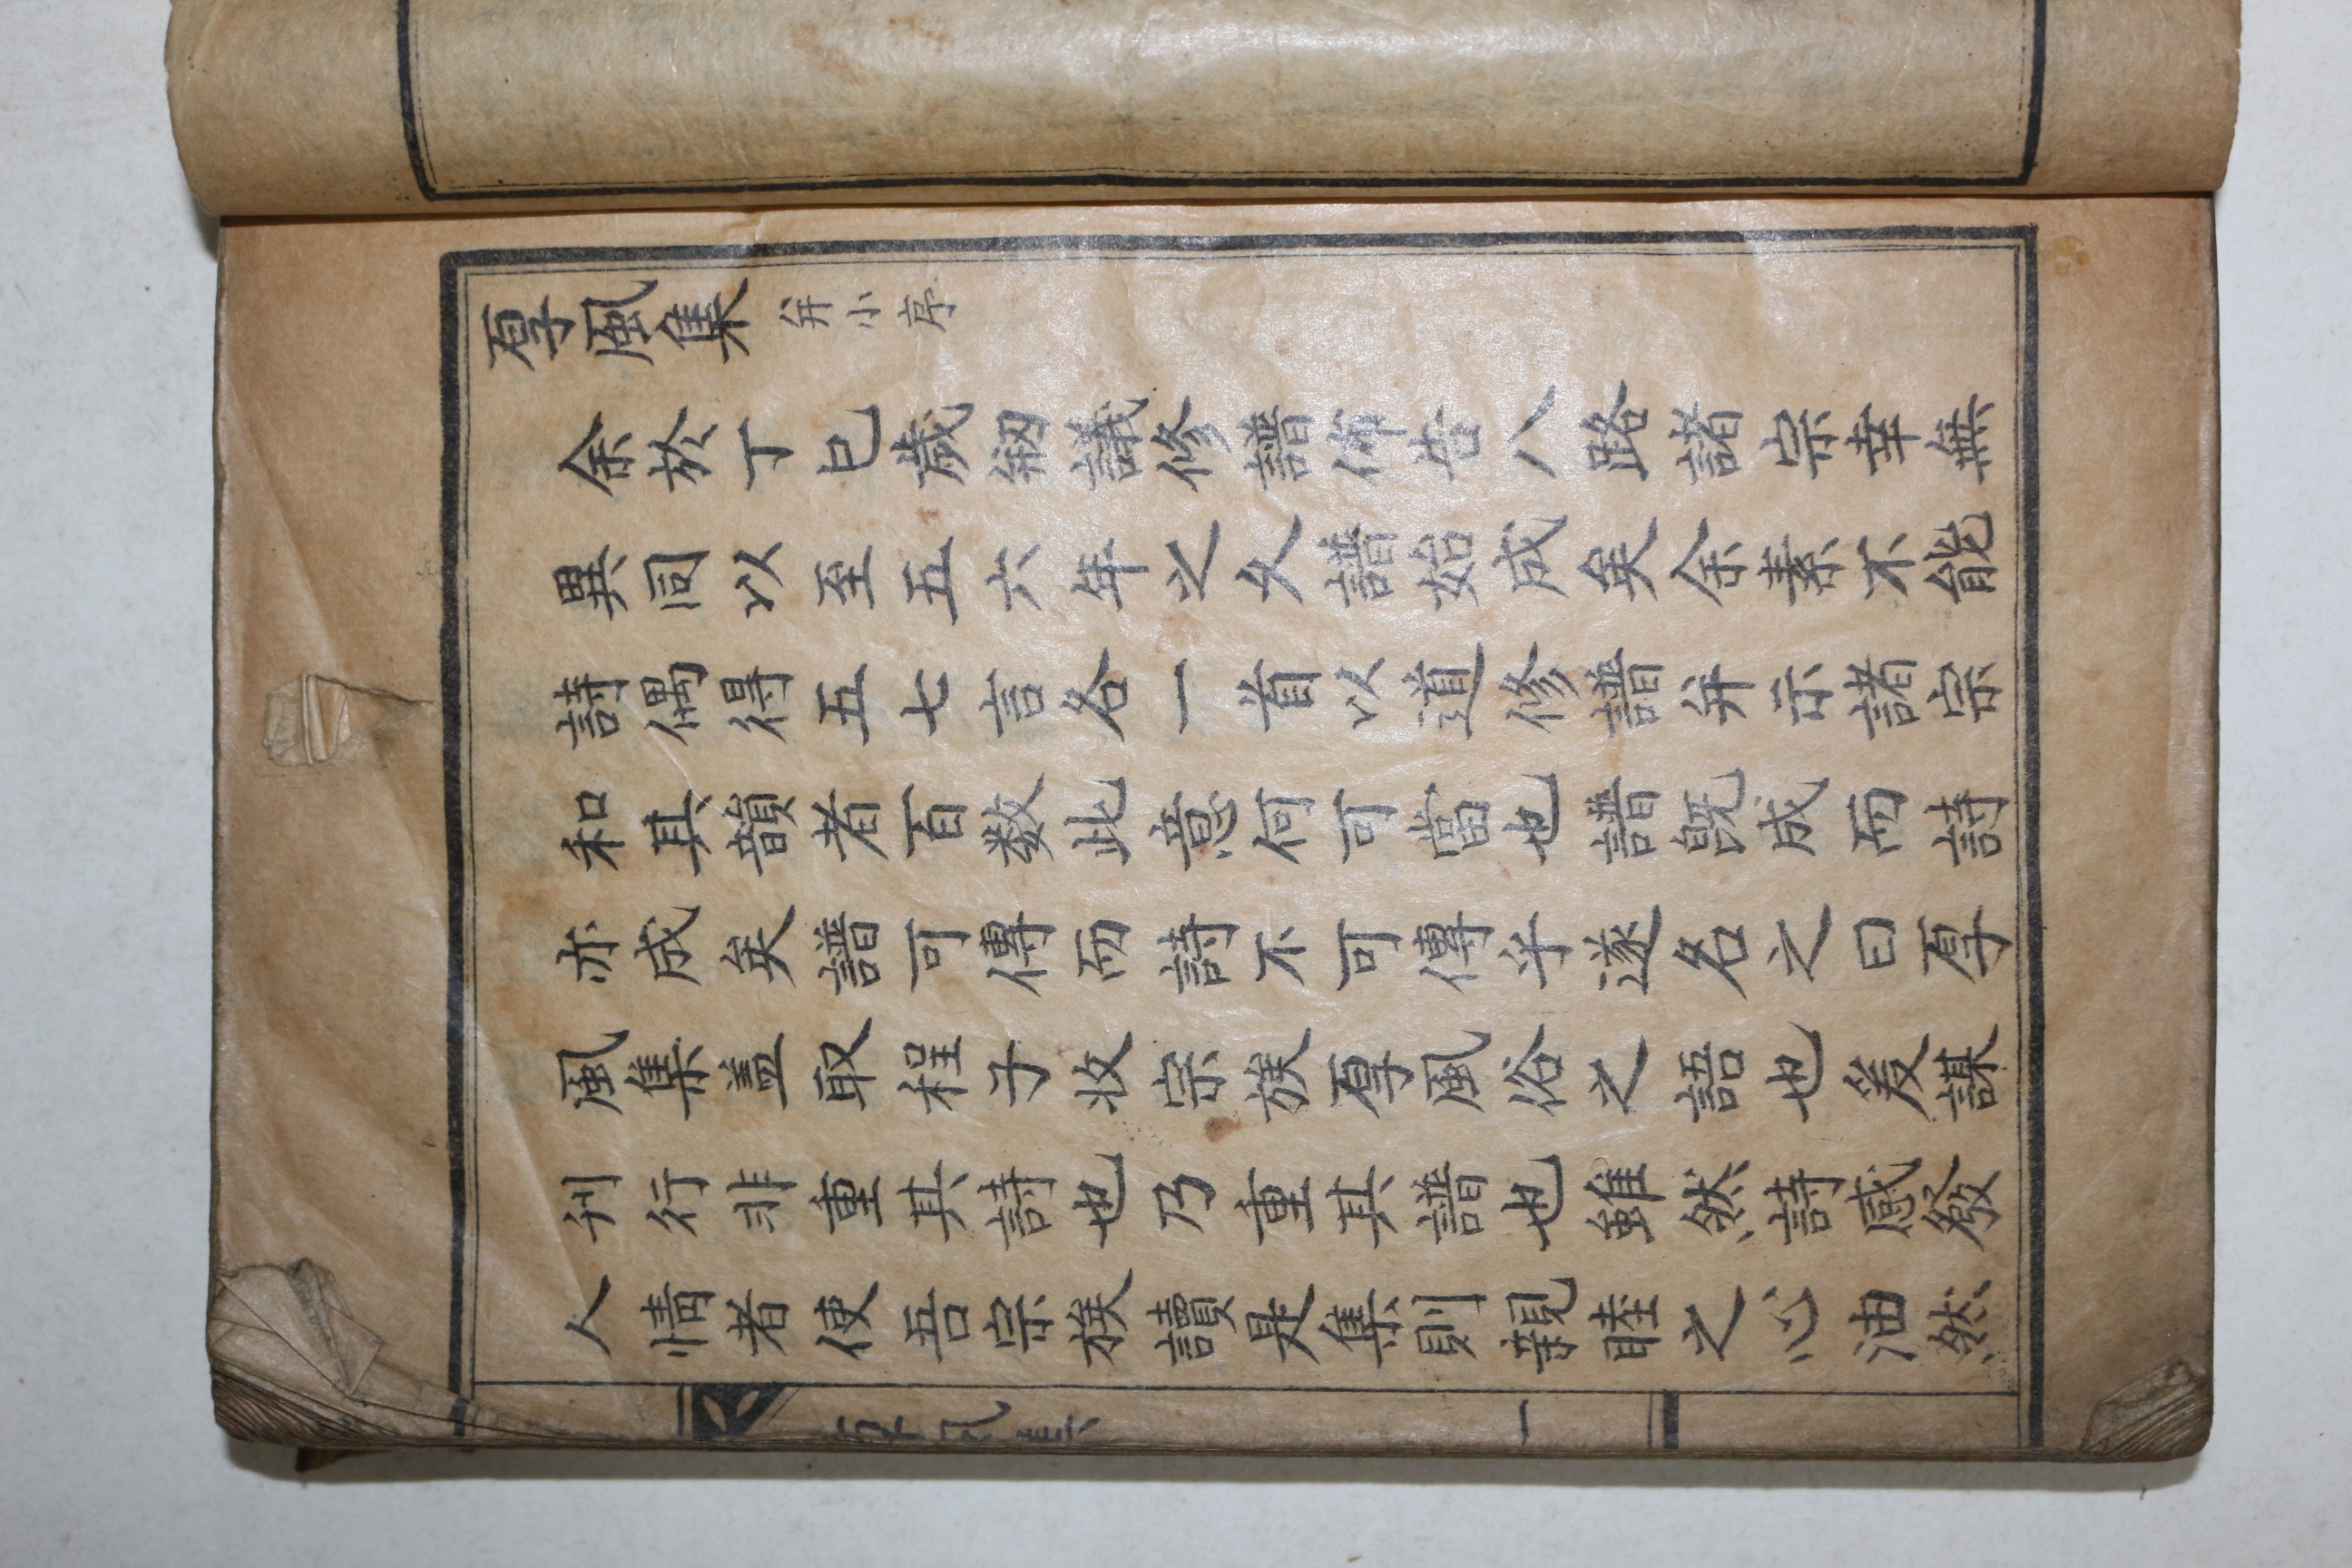 厚風集 幷小序
余於丁巳歲剏議修譜佈告八路諸宗幸無
異同以至五六年之久譜始成矣余素不能
詩偶得五七言各一首以道修譜幷示諸宗
和其韻者百數此意何可當也譜旣成而詩
亦成矣譜可傳而詩不可傳乎遂名之曰厚
風集盖取程子收宗族厚風俗之語也爰謀
刋行非重其詩也乃重其譜也雖然詩感發
人情者使吾宗族讀是集則親睦之心油然
厚風集 一